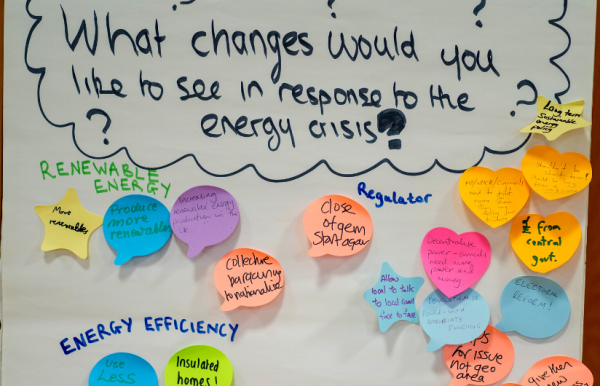 What changes would you
like to see in response to the
energy crisis?
Long term
sustainable
energy
policy
RENEWABLE
ENERGY
More
renewables
Produce
more
renewables
Increasing
renewable energy
production in the
UK
Collective
bargaining
to nationalise
Close
ofgem
start again
Regulator
£ From
central
govt.
Decentralise
power - councils
need more
power and
money
Allow
local to talk
to local
face to face
ELECTORAL
REFORM!
for issue
not geo
area
give then
ENERGY EFFICIENCY
Use
LESS
Insulated
homes!